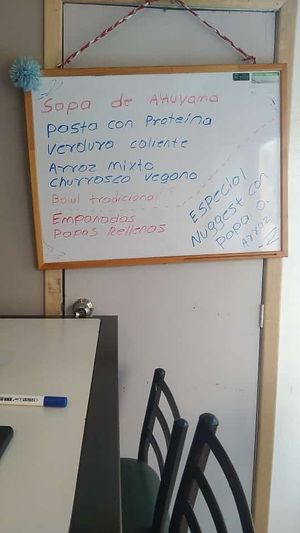 Sopa de Ahuyama
Pasta con Proteina
verdura caliente
Arroz mixto
churrasco vegano
Bowl tradicional
Empanadas
Papas Rellenas
ESPECIAL
Nuggest con
papa o
Arroz